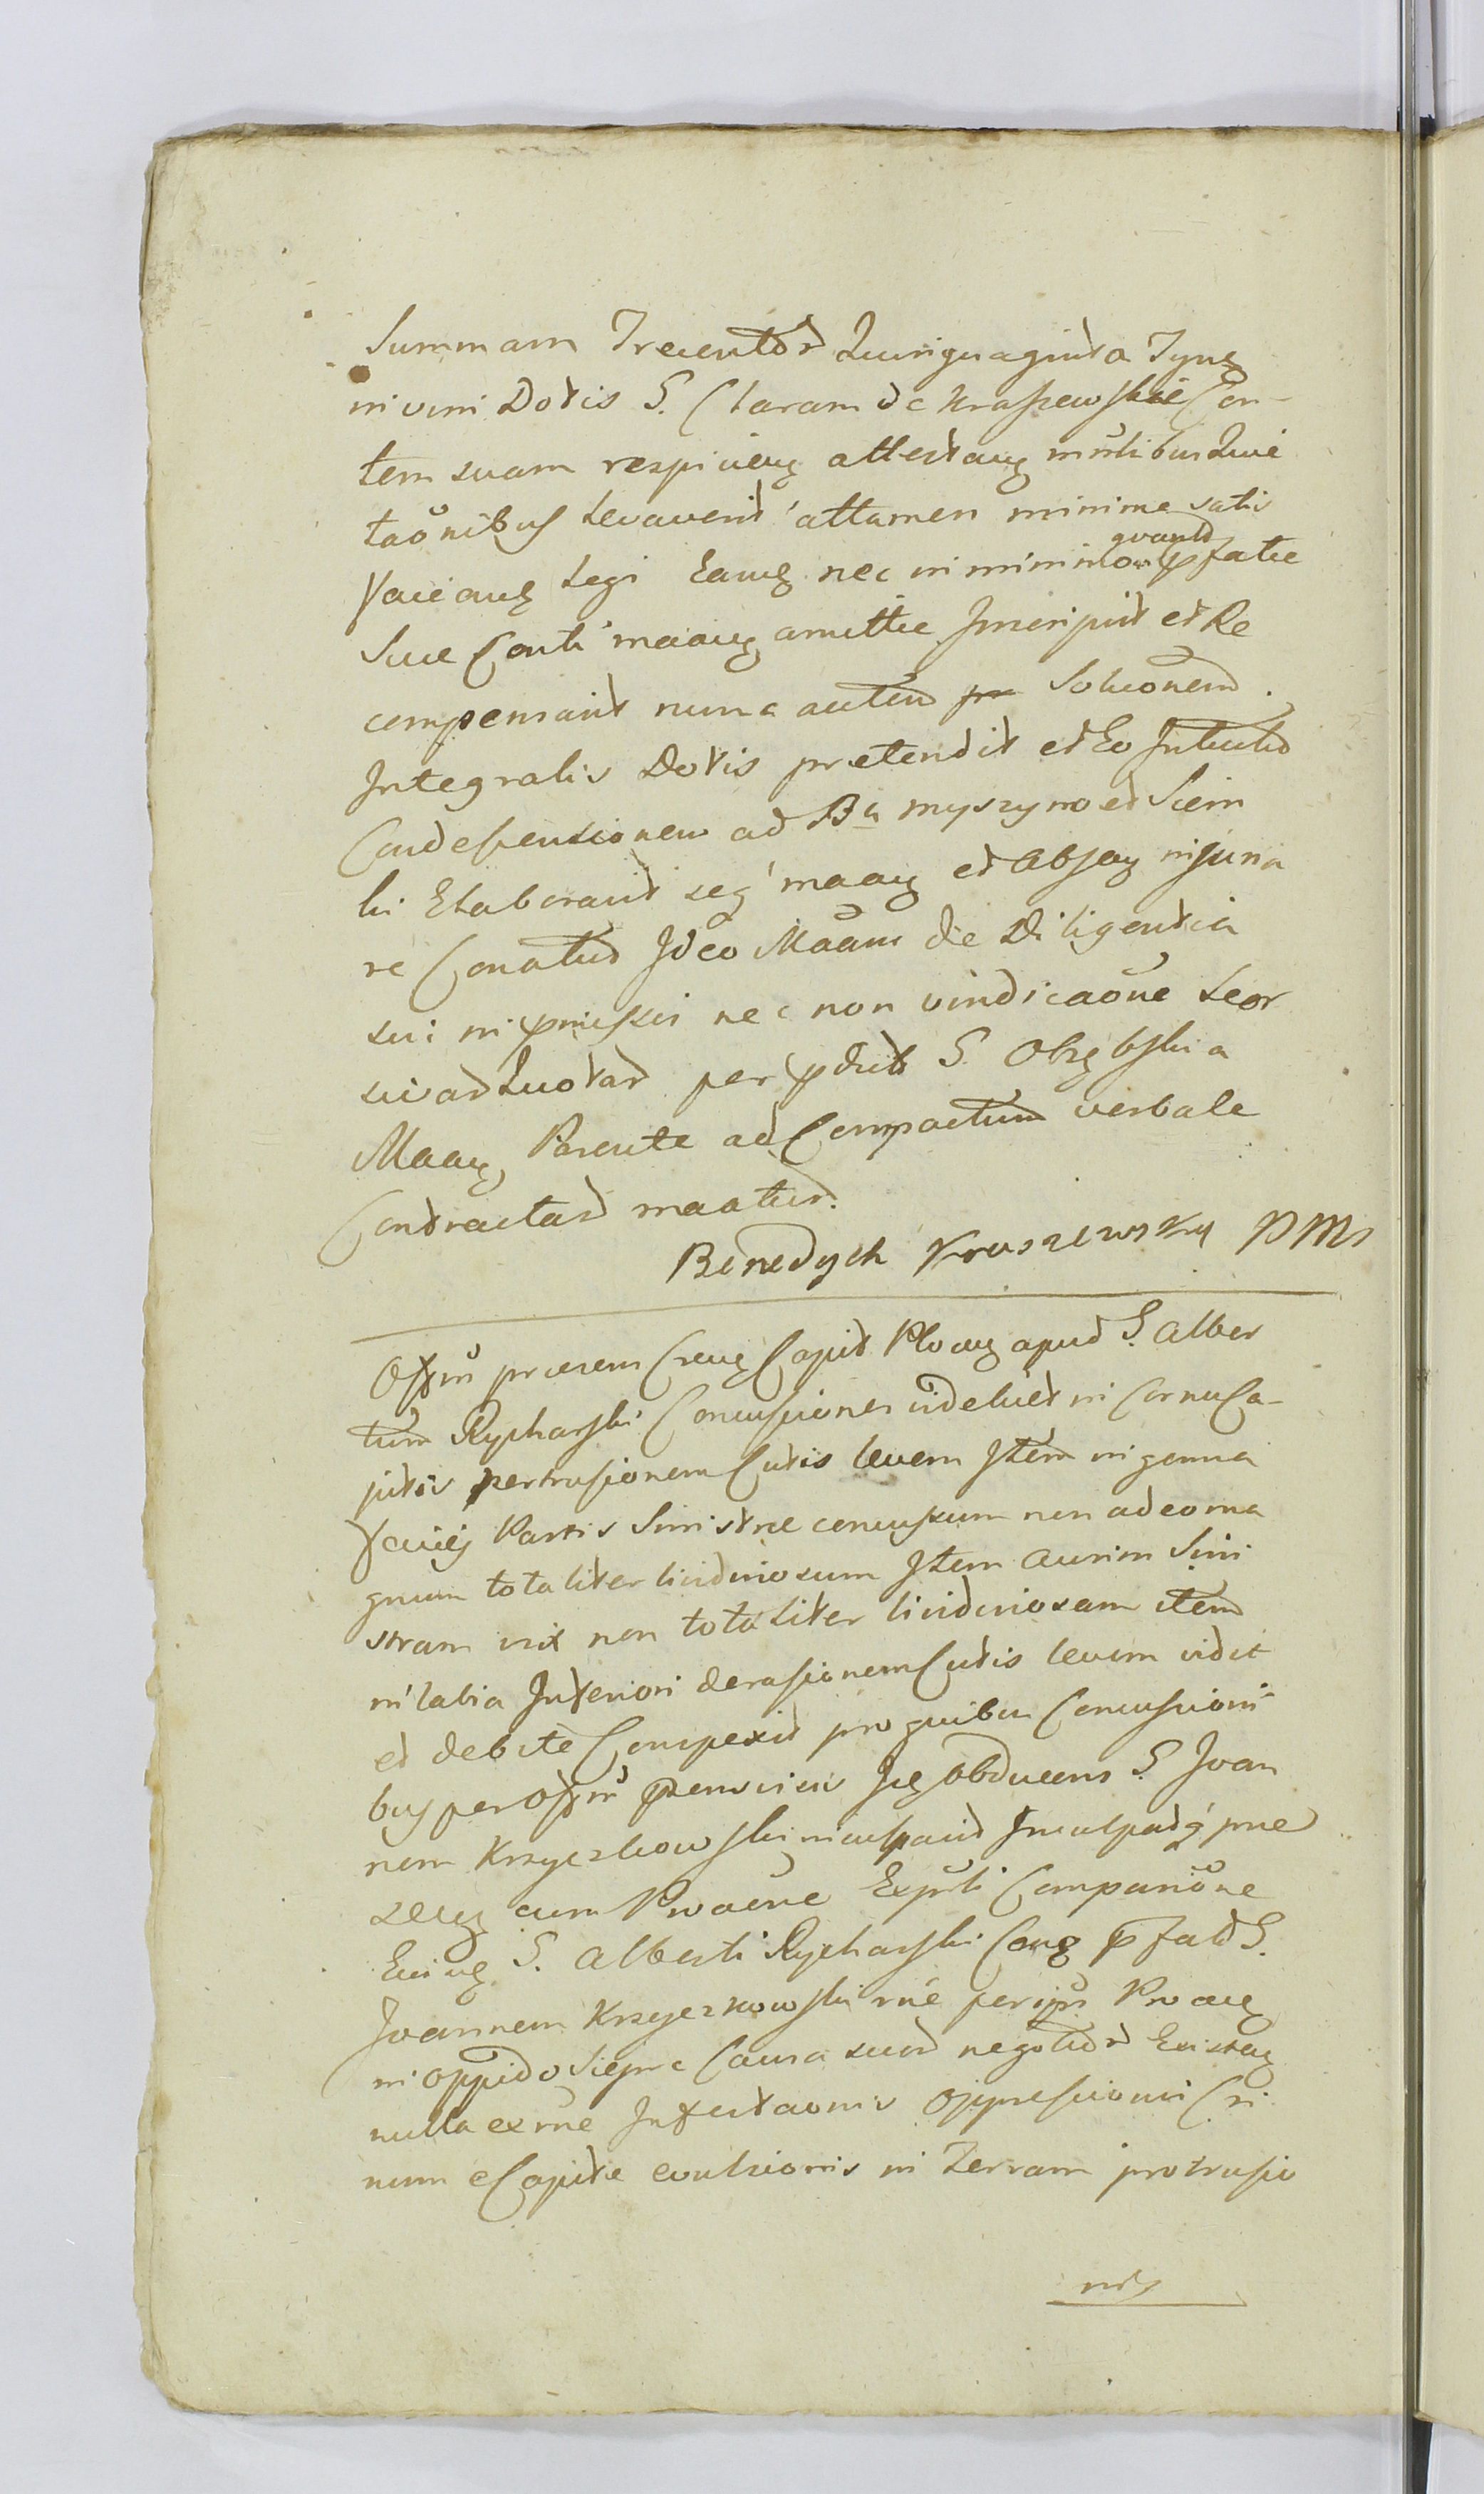 Summam Trecentor Quinquaginta Tynf
in vim Dotis G. Claram de Kraszewskie Con-
tem suam respicien attestan mltibus Quie
taonibus Levaverit attamen minime satis
faciens Legi Eamq nec in minimo quanto pfatae
Suae Conti maaeq amittae Inscripsit et Re
compensavit nunc autem Solucionem
Integralis Dotis praetendit et Eo Intuitu
Condescensionem ad Ba Myszyno et Siem
ki Elaboravit seq maaeq et Absq injuria
re Conatur Ideo Maans de Diligentia
sui in praemissis nec non vindicaone Leor
sui ad Quotas per pdict G. Obrębskia
Maaeq Parente ad Compactum verbale
Contractas maatur.
Benedykt Kraszewsky PMs
Offm praesens Crense Capit Plocen apud G. Alber
tum Rycharski Concussiones videlicet in Cornu Ca-
pitis pertrusionem Cutis levem Item in genna
faciei Partis Sinistrae concussum non adeo ma
gnum totaliter lividinosum Item Aurim Sini
stram vix non totaliter lividinosam item
in labia Inferiori derasionem Cutis levem vidit
et debite Conspexit pro quibus Concussioni
bus per Offm praesens visis Seq obducens G. Joan
nem Krzyczkowski inculpavit Inculpatq prae
senq cum Pwaone Expsti Comparione
Euing G. Alberti Rycharski Conq pfatd G.
Joannem Krzyczkowski rne per ips Pwaeq
in oppido Sieprc Causa suor negotior Existen
nulla ex rne Infestaonis oppressionis Cri
nium e Capite evulsionis in Terram protrusio
nis